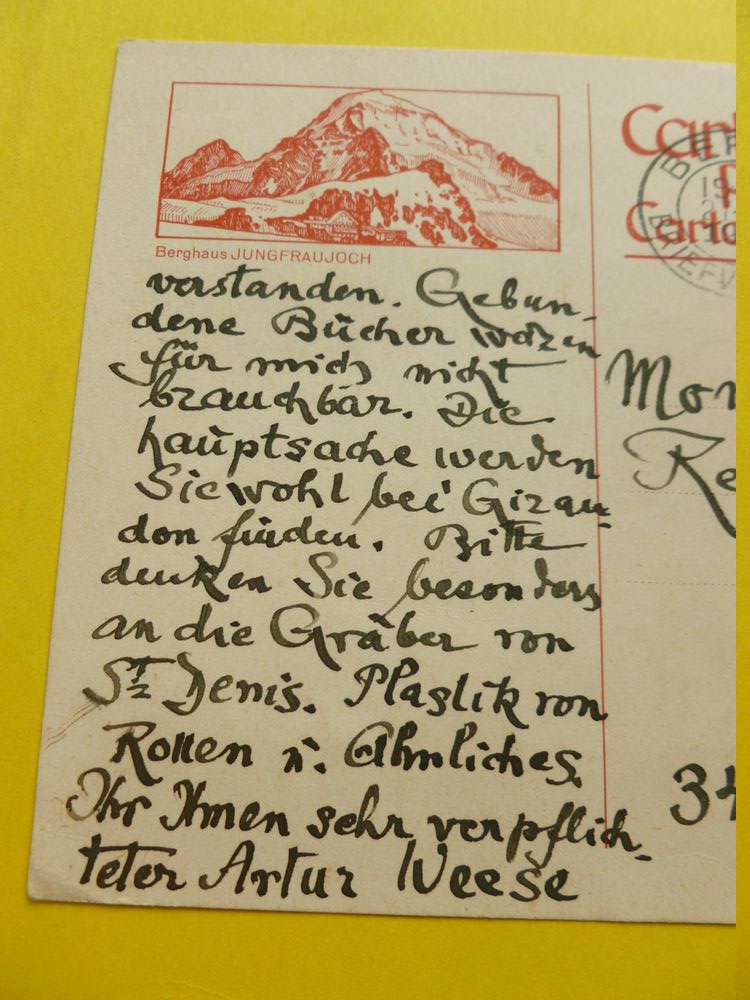 Berghaus JUNGFRAUJOCH
verstanden. Gebun-
dene Bücher wären
für mich nicht
brauchbar. Die
hauptsache werden
Sie wohl bei Girau-
don finden. Bitte
denken Sie besonders
an die Gräber von
St Denis. Plastik von
Rouen u. Ähnliches.
Ihr Ihnen sehr verpflich-
teter Artur Weese
Cart
Carto
BER
19
BRIEFV
Mon
Re
34